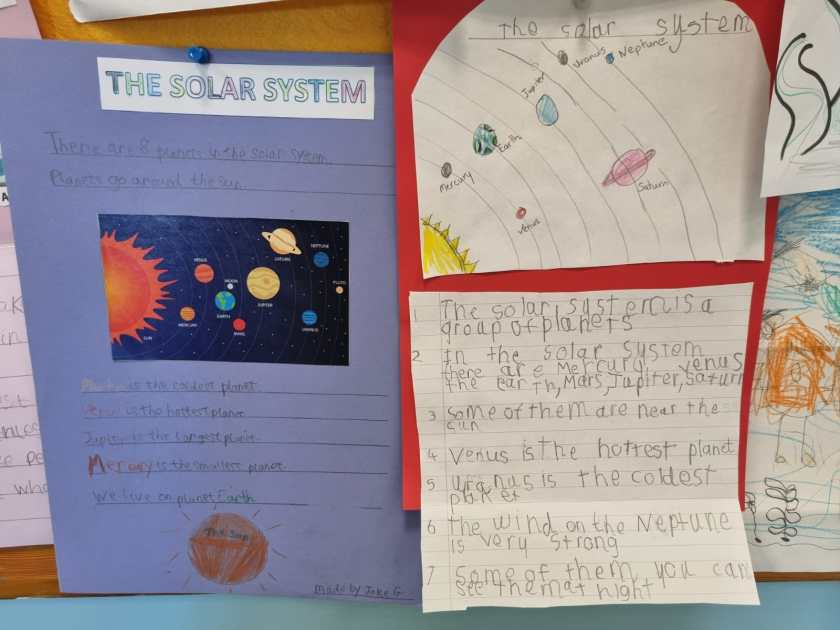 THE SOLAR SYSTEM
There are 8 planets in the solar system.
Planets go around the sun.
SATURN
NEPTUNE
VENUS
MOON
PLUTO
EARTH
JUPITER
MERCURY
MARS
URANUS
SUN
Pluto is the coldest planet.
Venus is the hottest planet.
Jupiter is the largest planet.
Mercury is the smallest planet.
We live on planet Earth.
The Sun
made by Jake G
The solar system
Uranus
Neptune
Jupiter
Earth
Mercury
Saturn
Venus
1 The solar system is a
group of planets
2 In the solar system
there are Mercury, venus
the earth, Mars, Jupiter, Saturn
3 some of them are near the
sun
4 Venus is the hottest planet
5 uranus is the coldest
planet
6 the wind on the Neptune
is very strong
7 some of them you can
see them at night